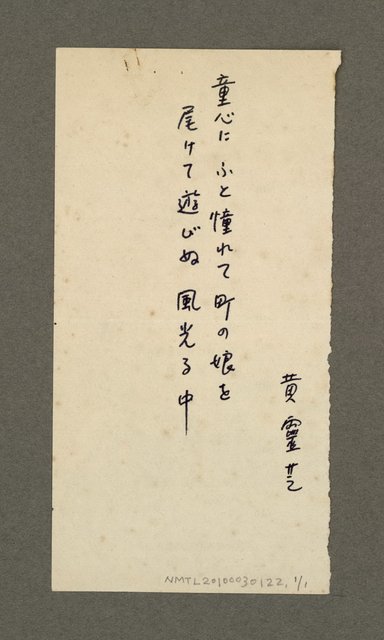 黄靈芝
童心にふと憧れて町の娘を
尾けて遊びぬ風光る中
NMTL20100030122, 1/1